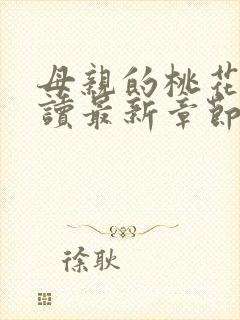 母親的桃花
讀最新章節
徐耿